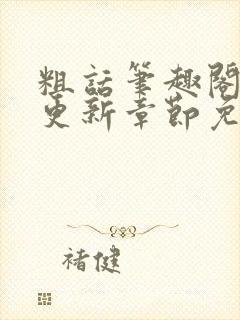 粗話筆趣閣
更新章節免
褚健